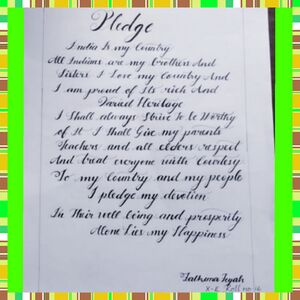 Pledge
India Is my Country
All Indians are my Brothers And
Sisters I Love my Country And
I am proud of Its rich And
Varied Heritage
I Shall always Strive to be Worthy
of It I Shall Give my parents
Teachers and all elders respect
And treat everyone with Courtesy
To my Country and my people
I pledge my devotion
In Their well being and prosperity
Alone Lies my Happiness
Fathima Iyah
X-E Roll no 16